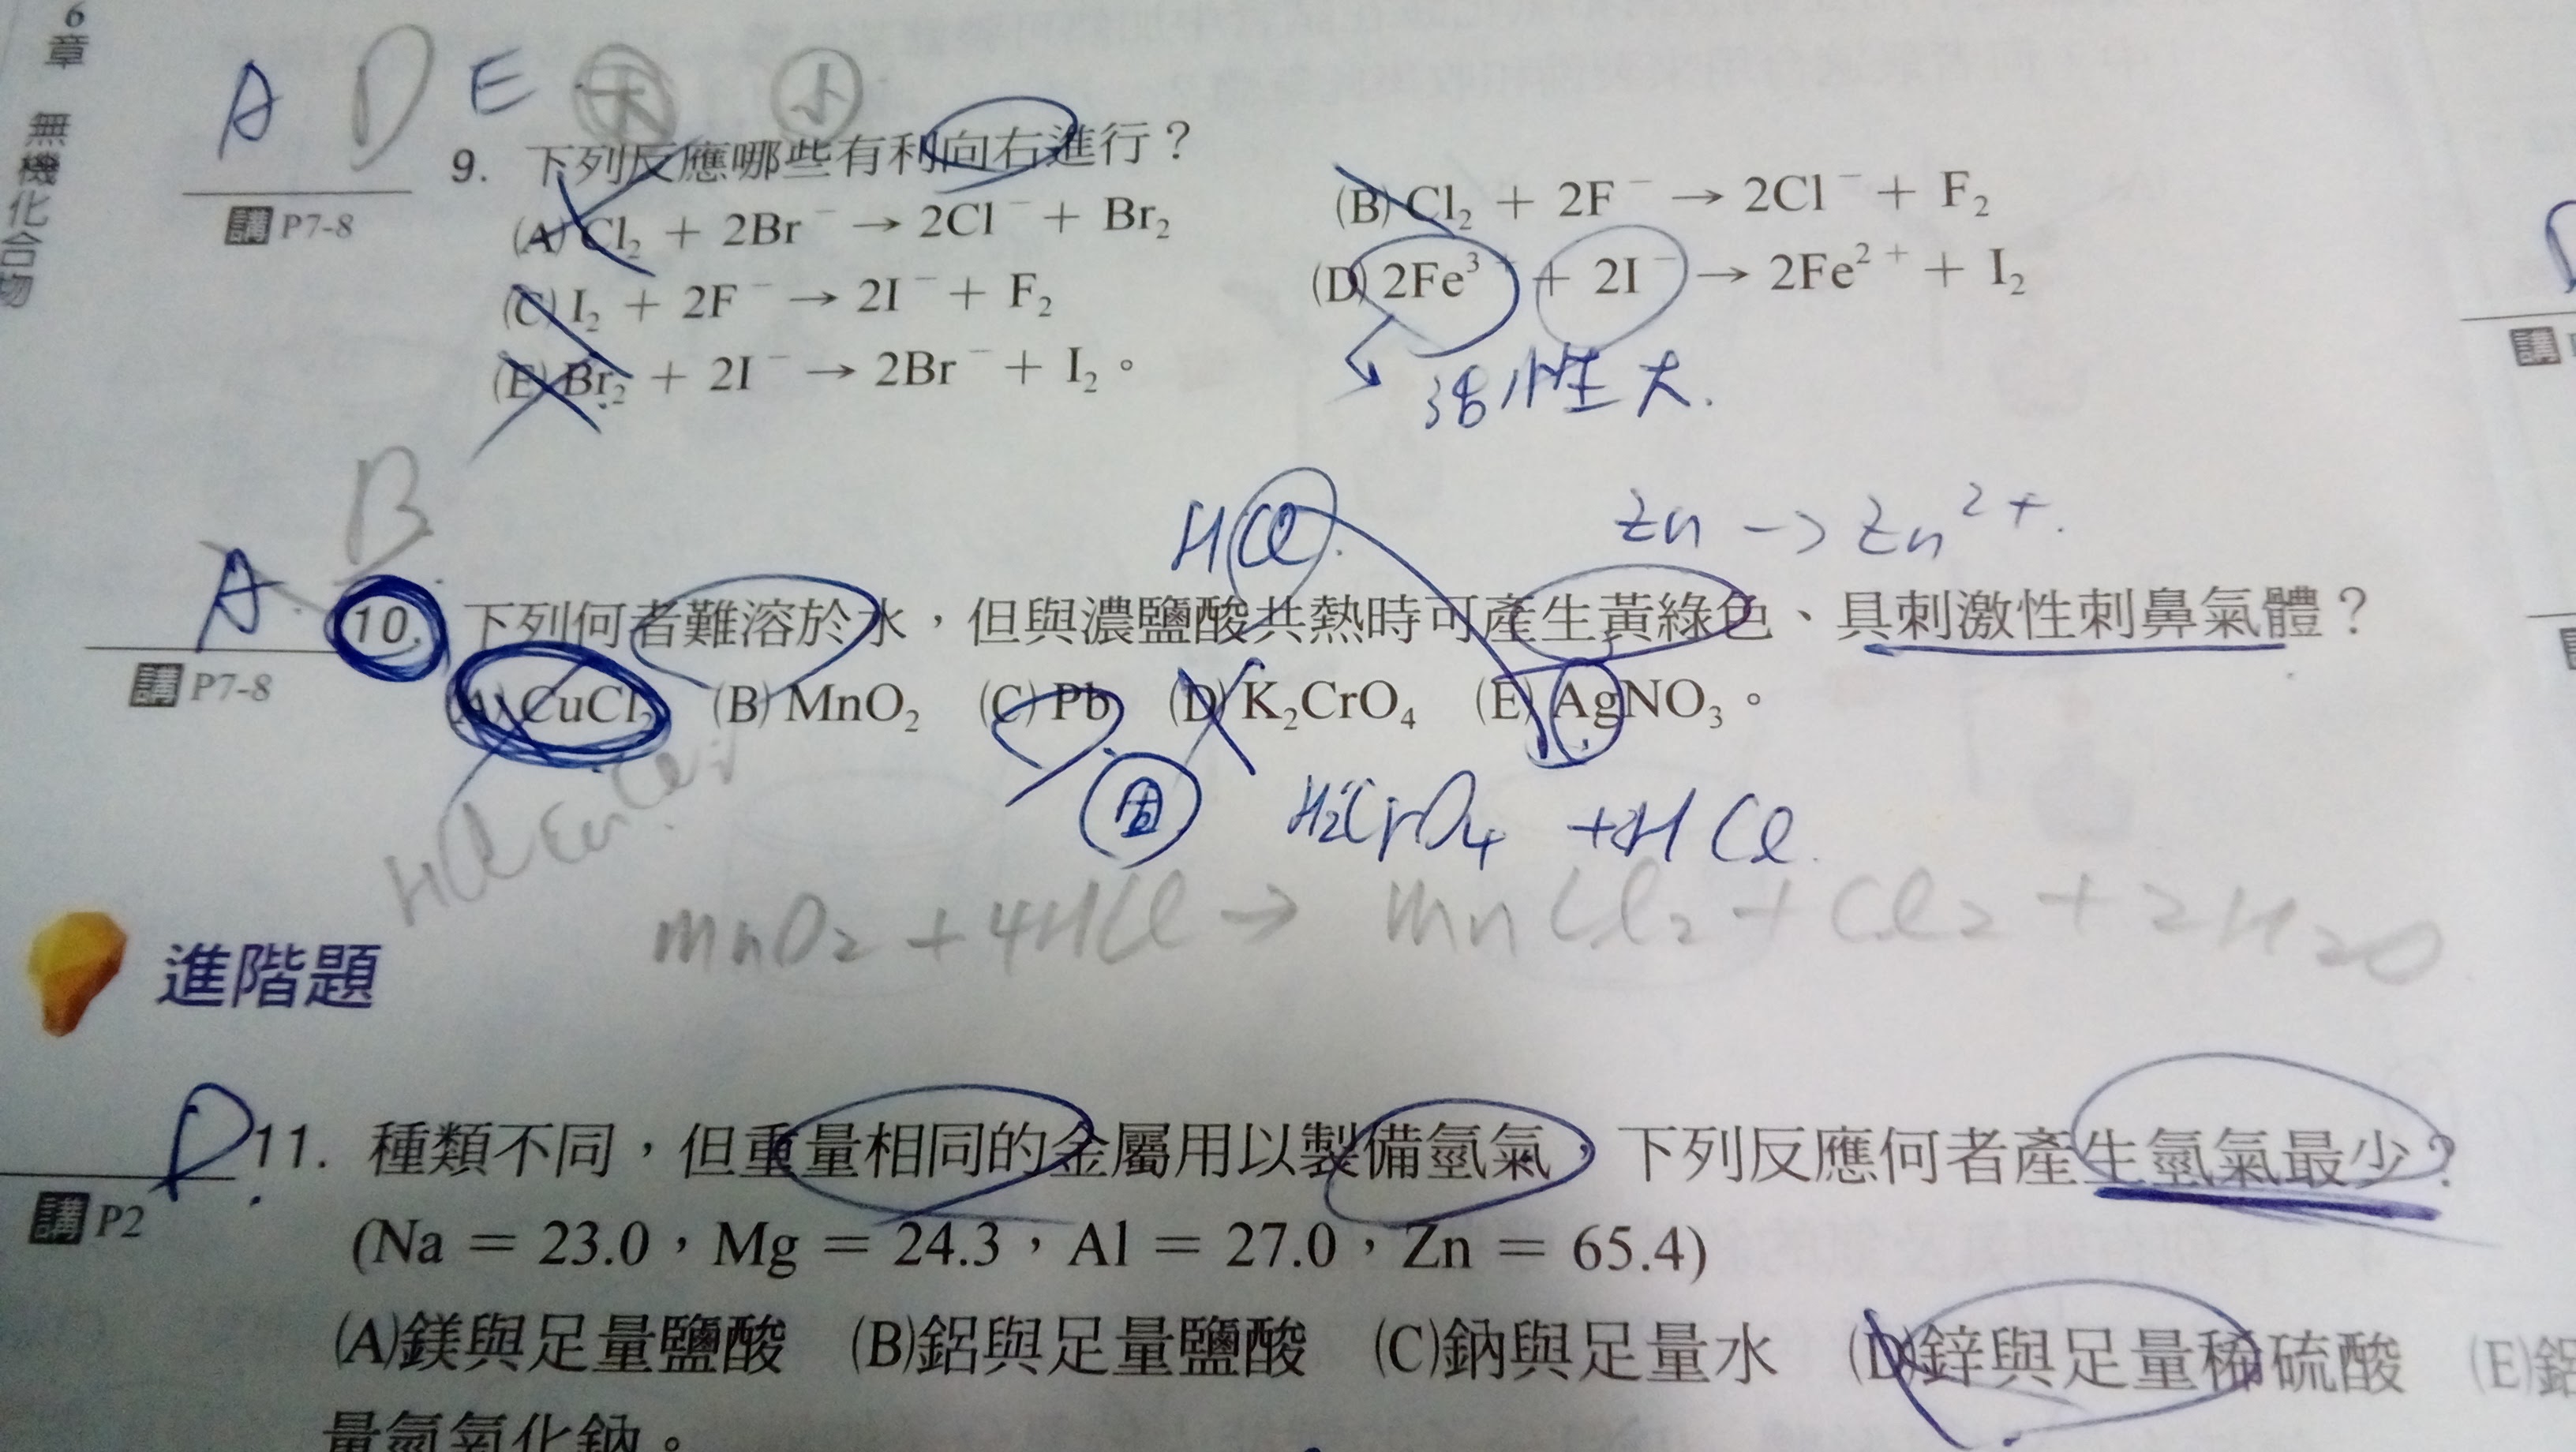 6
章
無機化合物
A D E 大 小
9. 下列反應哪些有利向右進行？
講 P7-8
(A) Cl₂ + 2Br⁻ → 2Cl⁻ + Br₂ (B) Cl₂ + 2F⁻ → 2Cl⁻ + F₂
(C) I₂ + 2F⁻ → 2I⁻ + F₂ (D) 2Fe³⁺ + 2I⁻ → 2Fe²⁺ + I₂
(E) Br₂ + 2I⁻ → 2Br⁻ + I₂。
活性大.
B
HCl. Zn → Zn²⁺.
A 10. 下列何者難溶於水，但與濃鹽酸共熱時可產生黃綠色、具刺激性刺鼻氣體？
講 P7-8
(A) CuCl₂ (B) MnO₂ (C) Pb (D) K₂CrO₄ (E) AgNO₃。
固 H₂CrO₄ + HCl.
HCl
MnO₂ + 4HCl → MnCl₂ + Cl₂ + 2H₂O
進階題
D 11. 種類不同，但重量相同的金屬用以製備氫氣，下列反應何者產生氫氣最少？
講 P2
(Na = 23.0，Mg = 24.3，Al = 27.0，Zn = 65.4)
(A)鎂與足量鹽酸 (B)鋁與足量鹽酸 (C)鈉與足量水 (D)鋅與足量稀硫酸 (E)鋁
量氫氧化鈉。
講